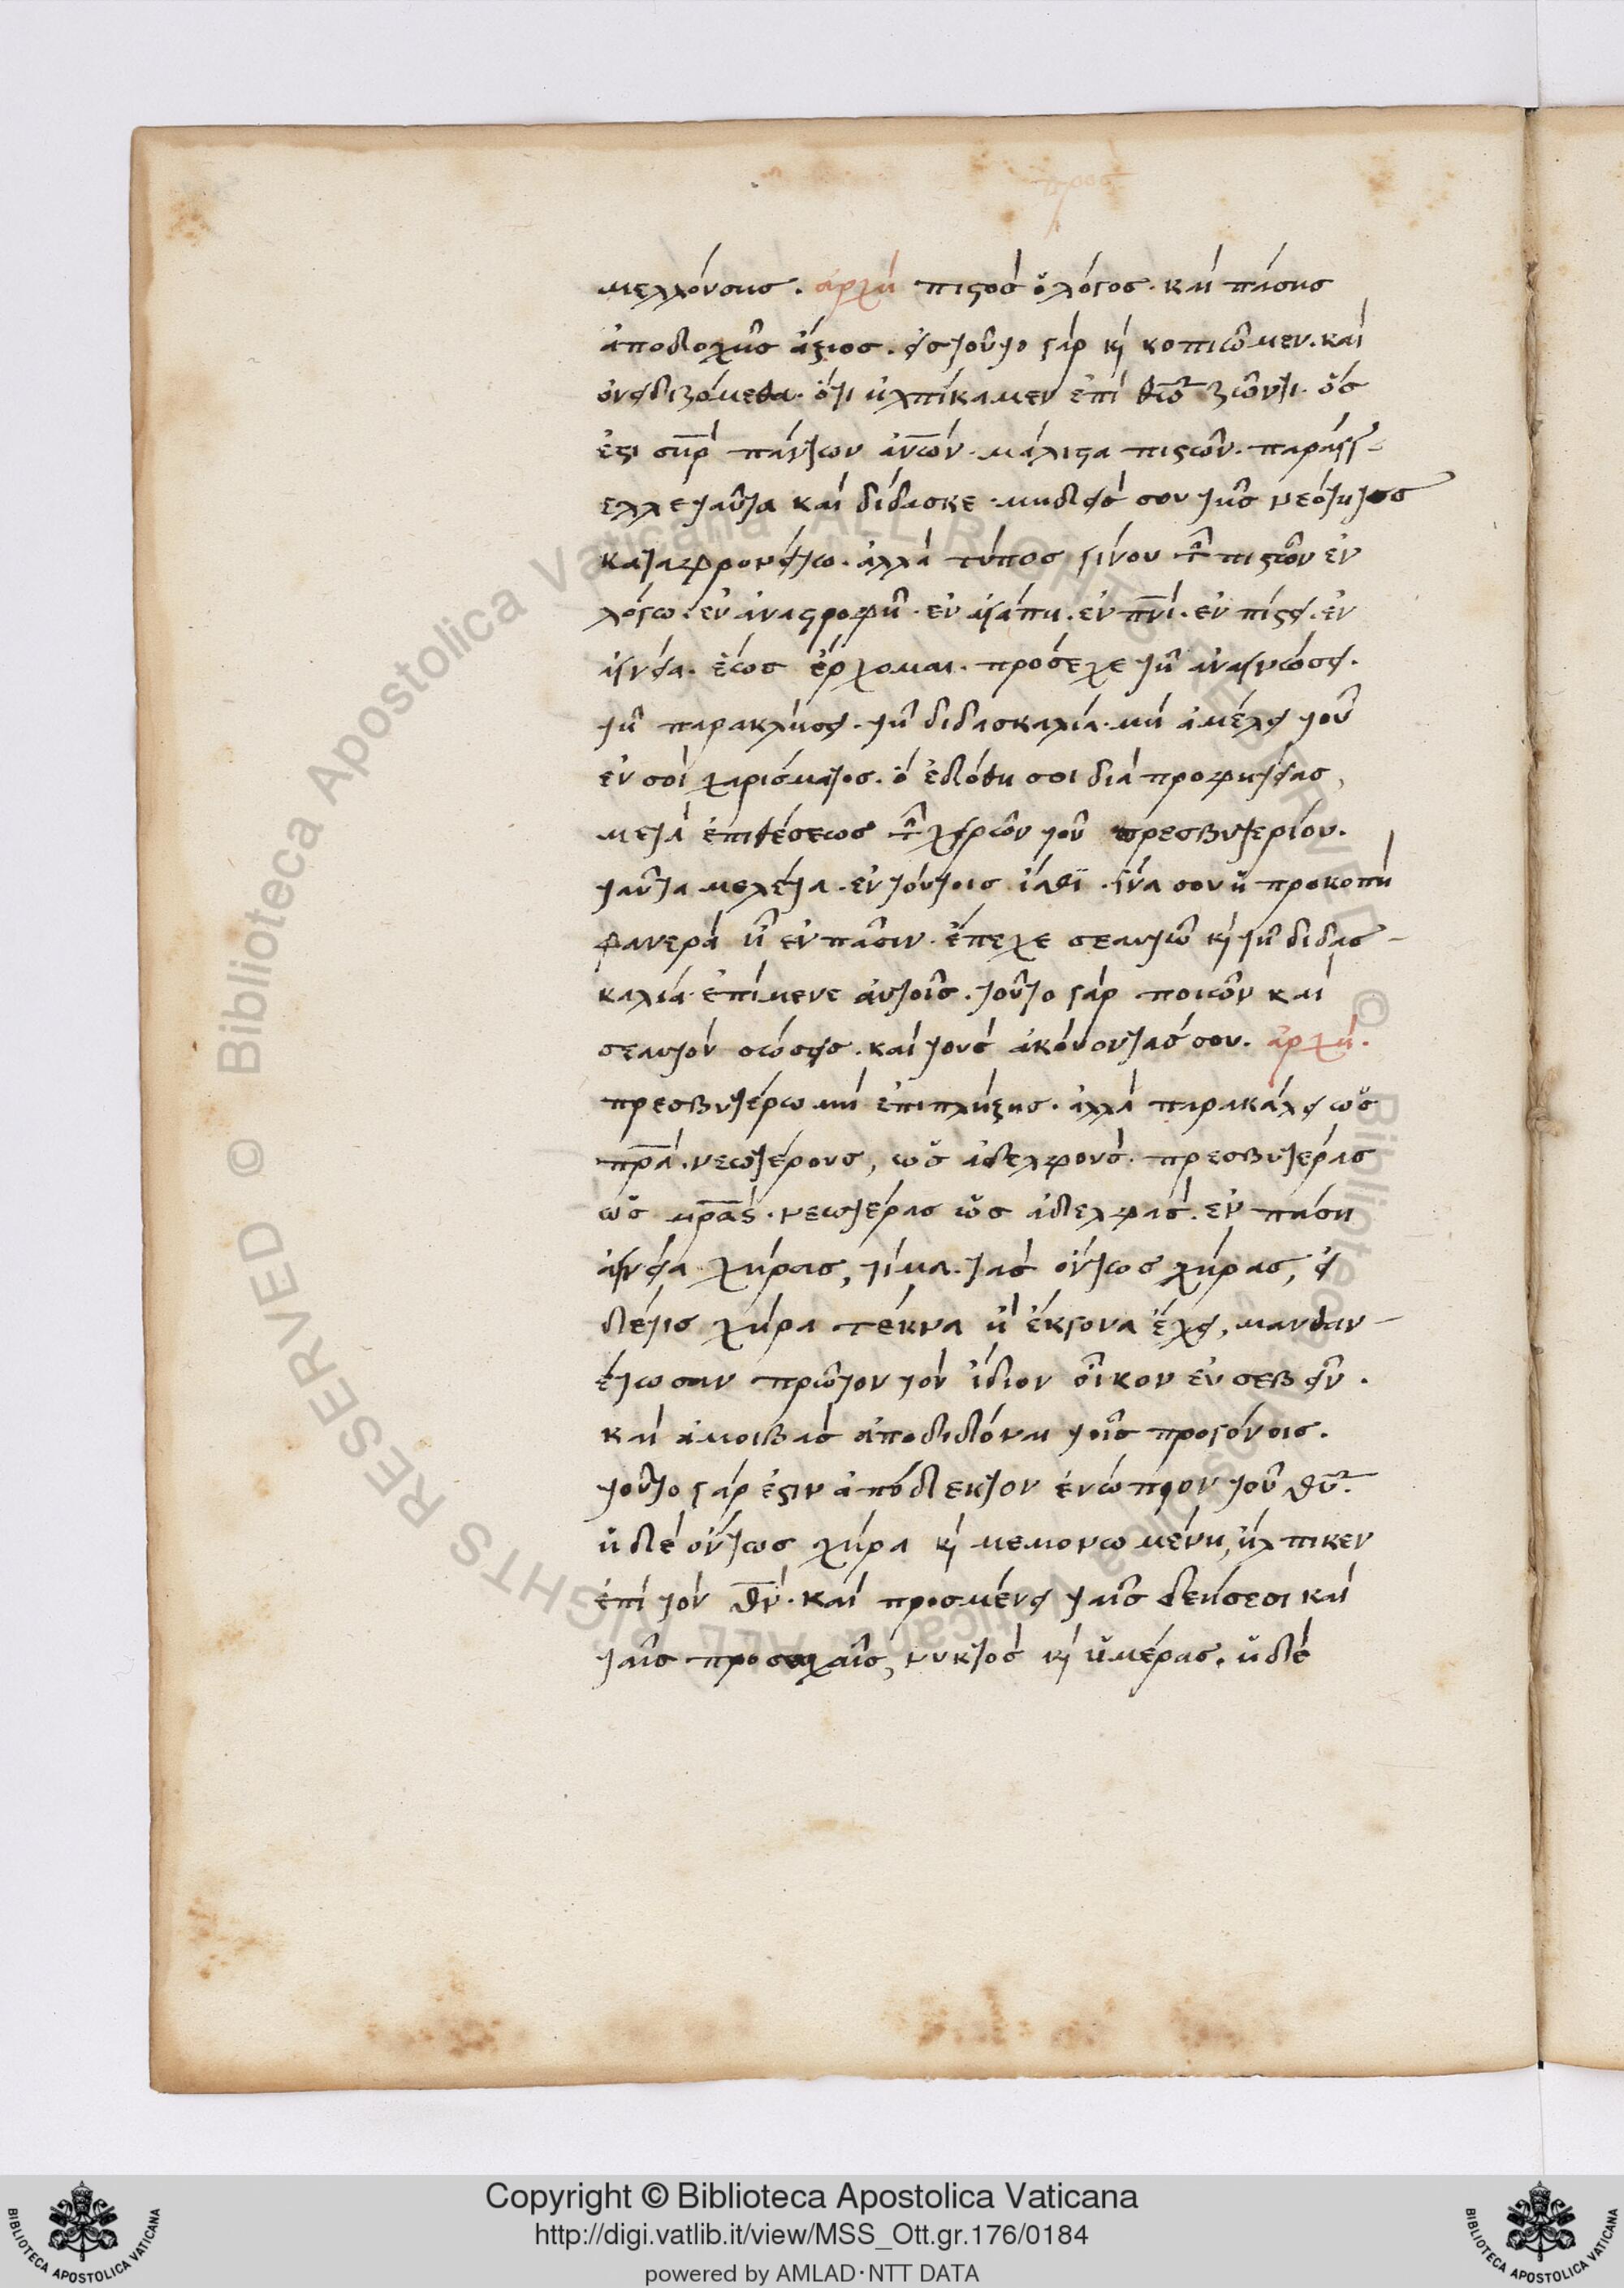 προσ
μελλούσης. ἀρχὴ πιστὸς ὁ λόγος. καὶ πάσης
ἀποδοχῆς ἄξιος. εἰς τοῦτο γὰρ κ̀ κοπιῶμεν. καὶ
ὀνειδιζόμεθα. ὅτι ἠλπίκαμεν ἐπὶ θῶ ζῶντι. ὅς
ἐστι σηρ πάντων ἀνων. μάλιστα πιστῶν. παράγγ-
ελλε ταῦτα καὶ δίδασκε. μηδείς σου τῆς νεότητος
καταφρονείτω. ἀλλὰ τύπος γίνου τῶν πιστῶν ἐν
λόγω. ἐν ἀναστροφῆ. ἐν ἀγάπη. ἐν πνι. ἐν πίστει. ἐν
ἁγνεία. ἕως ἔρχομαι. πρόσεχε τῆ ἀναγνώσει.
τῆ παρακλήσει. τῆ διδασκαλία. μὴ ἀμέλει τοῦ
ἐν σοὶ χαρίσματος. ὃ ἐδόθη σοι διὰ προφητείας,
μετὰ ἐπιθέσεως τῶν χειρῶν τοῦ πρεσβυτερίου.
ταῦτα μελέτα. ἐν τούτοις ἴσθϊ. ἵνα σου ἡ προκοπὴ
φανερὰ ἦ ἐν πᾶσιν. ἔπεχε σεαυτῶ κ̀ τῆ διδασ-
καλία. ἐπίμενε αὐτοῖς. τοῦτο γὰρ ποιῶν καὶ
σεαυτὸν σώσεις. καὶ τοὺς ἀκούοντάς σου. ἀρχή.
πρεσβυτέρω μὴ ἐπιπλήξης. ἀλλὰ παρακάλει ὡς
πρα. νεωτέρους, ὡς ἀδελφούς. πρεσβυτέρας
ὡς μρας. νεωτέρας ὡς ἀδελφάς. ἐν πάση
ἁγνεία χήρας, τίμα. τὰς ὄντως χήρας, εἰ
δέ τις χήρα τέκνα ἢ ἔκγονα ἔχει, μανθαν-
έτωσαν πρῶτον τὸν ἴδιον οἶκον εὐσεβεῖν.
καὶ ἀμοιβὰς ἀποδιδόναι τοῖς προγόνοις.
τοῦτο γάρ ἐστιν ἀπόδεκτον ἐνώπιον τοῦ θυ.
ἡ δὲ ὄντως χήρα κ̀ μεμονωμένη, ἤλπικεν
ἐπὶ τὸν θν. καὶ προσμένει ταῖς δεήσεσι καὶ
ταῖς προσευχαῖς, νυκτὸς κ̀ ἡμέρας. ἡ δὲ
BIBLIOTECA APOSTOLICA VATICANA
Copyright © Biblioteca Apostolica Vaticana
http://digi.vatlib.it/view/MSS_Ott.gr.176/0184
powered by AMLAD·NTT DATA
BIBLIOTECA APOSTOLICA VATICANA
© Biblioteca Apostolica Vaticana ALL RIGHTS RESERVED © Biblioteca Apostolica Vaticana ALL RIGHTS RESERVED